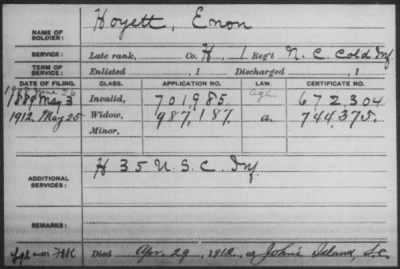 NAME OF SOLDIER: Hoyett, Enon
SERVICE: Late rank, Co. H, 1 Reg't N. C. Cold Inf.
TERM OF SERVICE: Enlisted , 1 Discharged , 1
DATE OF FILING. CLASS. APPLICATION NO. LAW. CERTIFICATE NO.
1889 May 3 Invalid, 701,985. 672,304
1912, May 25 Widow, 987,187. a. 744,375.
Minor,
ADDITIONAL SERVICES: H 35 U. S. C. Inf.
REMARKS:
Died Apr. 29, 1912, at John's Island, S.C.